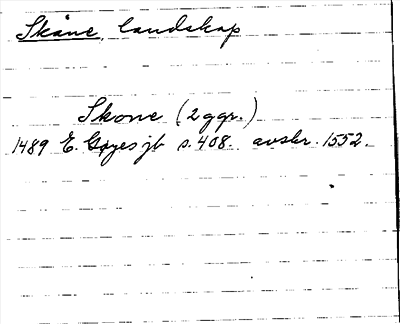 Skåne, landskap
Skone (2 ggr.)
1489 E. Gøyes jb s. 408. avskr. 1552.